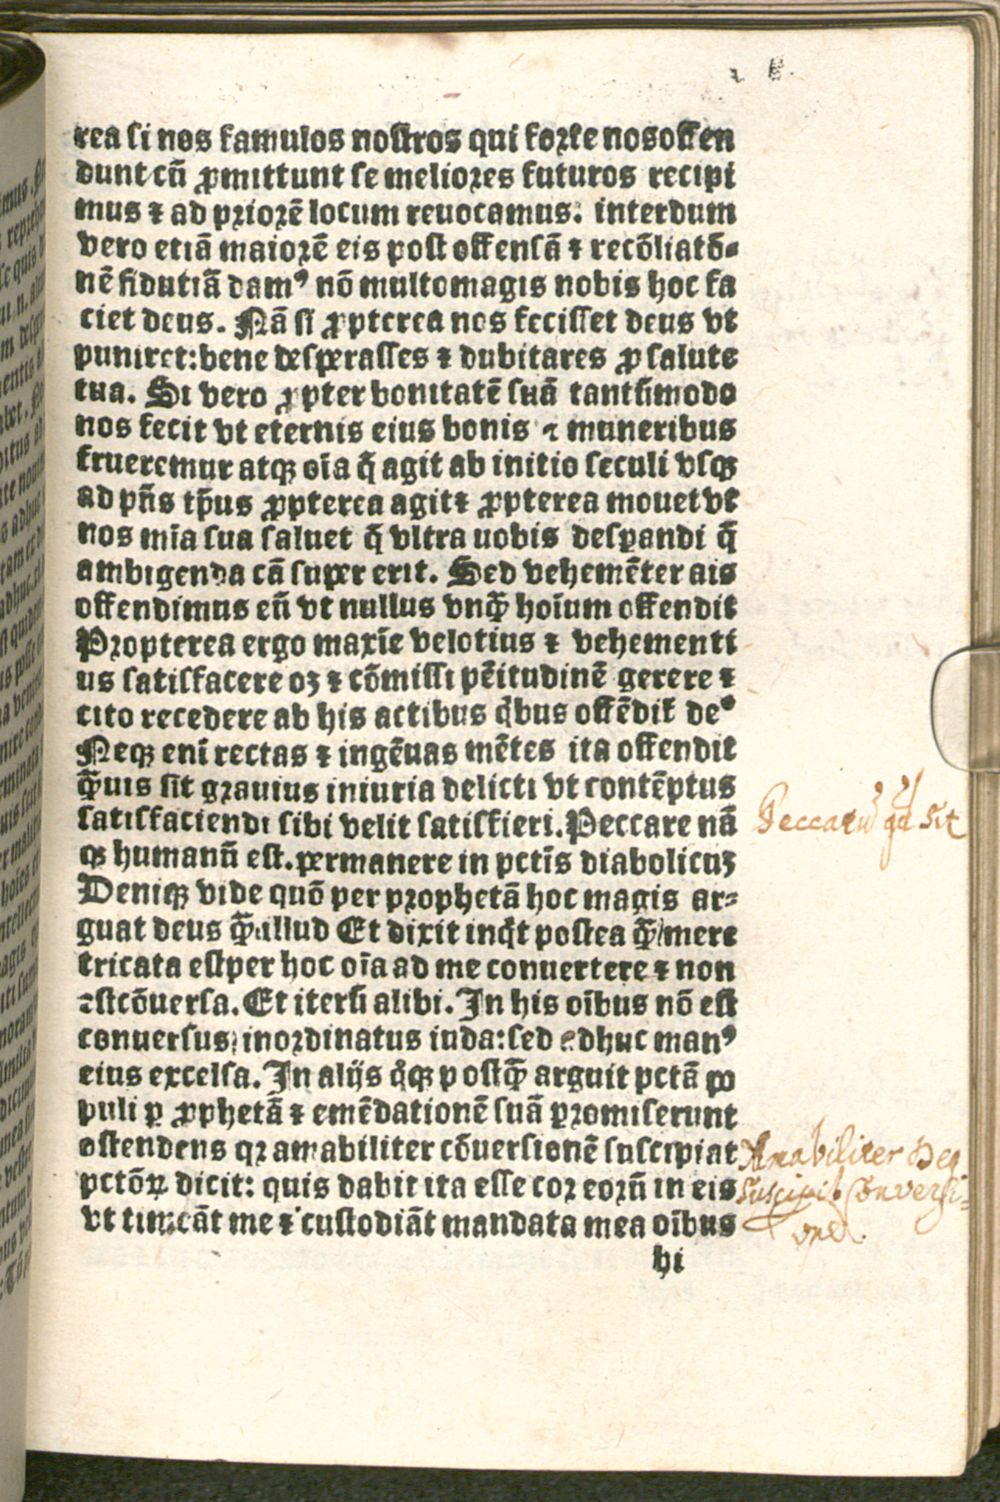 rea si nos famulos nostros qui forte nosoffen
dunt cū ꝓmittunt se meliores futuros recipi
mus ⁊ ad priorē locum reuocamus. interdum
vero etiā maiorē eis post offensā ⁊ recōliatō-
nē fidutiā damꝰ nō multomagis nobis hoc fa
ciet deus. Nā si ꝓpterea nos fecisset deus vt
puniret: bene desperasses ⁊ dubitares ꝓ salute
tua. Si vero ꝓpter bonitatē suā tantūmodo
nos fecit vt eternis eius bonis ⁊ muneribus
frueremur atqꝫ oīa q̄ agit ab initio seculi vsqꝫ
ad pn̄s tp̄us ꝓpterea agit ⁊ ꝓpterea mouet vt
nos mīa sua saluet q̄ vltra uobis desꝑandi q̄
ambigenda cā super erit. Sed vehemēter ais
offendimus eū vt nullus vnqꝫ̄ hoīum offendit
Propterea ergo maxīe velotius ⁊ vehementi
us satisfacere oꝫ ⁊ cōmissi pēitudinē gerere ⁊
cito recedere ab his actibus q̇bus offēdit̄ deꝰ
Neqꝫ enī rectas ⁊ ingēuas mētes ita offendit
qꝫ̄uis sit grauius iniuria delicti vt contēptus
satisfaciendi sibi velit satisfieri. Peccare nā
qꝫ humanū est. permanere in pctīs diabolicuꝫ
Deniqꝫ vide quō per prophetā hoc magis ar-
guat deus qꝫ̄ illud Et dixit inq̇t postea qꝫ̄ mere
tricata estper hoc oīa ad me conuertere ⁊ non
estcōuersa. Et iterū alibi. In his oībus nō est
conuersus inordinatus iuda: sed adhuc manꝰ
eius excelsa. In alijs q̇qꝫ postqꝫ̄ arguit pctā po
puli ꝑ ꝓphetā ⁊ emēdationē suā ꝑromiserunt
ostendens qꝛ amabiliter cōuersionē suscipiat
pctōꝝ dicit: quis dabit ita esse cor eorū in eis
vt timeāt me ⁊ custodiāt mandata mea oībus
hi
Peccatū qd sit
Amabiliter Deꝰ
suscipit Conversi-
onē.